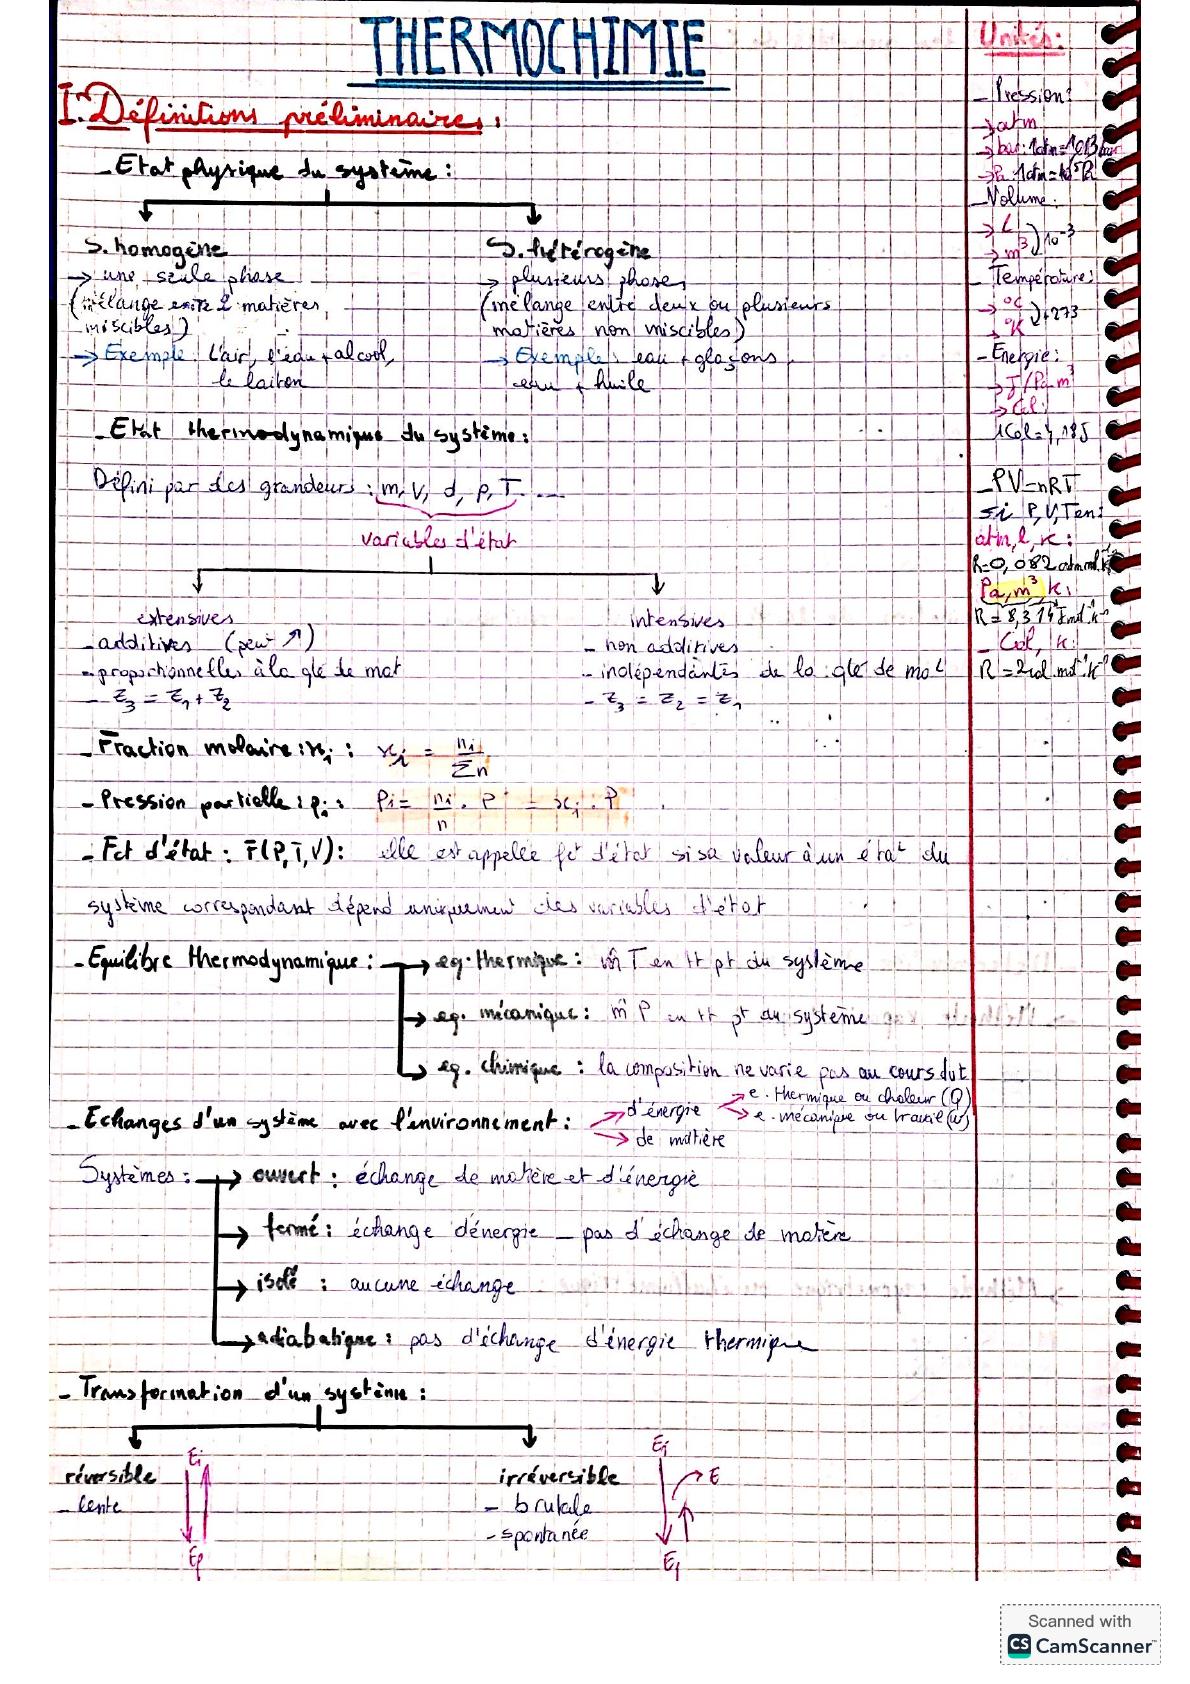 THERMOCHIMIE
I. Définitions préliminaires :
- Etat physique du système :
S. homogène
→ une seule phase
(mélange entre 2 matières
miscibles)
→ Exemple : L'air, l'eau + alcool,
le laiton
S. hétérogène
→ plusieurs phases
(mélange entre deux ou plusieurs
matières non miscibles)
→ Exemple : eau + glaçons,
eau + huile
- Etat thermodynamique du système :
Défini par des grandeurs : m, V, d, p, T ...
variables d'état
extensives
- additives (peut ↗)
- proportionnelles à la qté de mat
- Z3 = Z1 + Z2
intensives
- non additives
- indépendantes de la qté de mat
- Z3 = Z2 = Z1
- Fraction molaire : xi : xi = ni / Σn
- Pression partielle : pi : Pi = ni/n . P = xi . P
- Fct d'état : F(P,T,V) : elle est appelée fct d'état si sa valeur à un état du
système correspondant dépend uniquement des variables d'état
- Equilibre thermodynamique : → eq. thermique : m̂ T en tt pt du système
→ eq. mécanique : m̂ P en tt pt du système
→ eq. chimique : la composition ne varie pas au cours du t
- Echanges d'un système avec l'environnement : → d'énergie → e. thermique ou chaleur (Q)
→ e. mécanique ou travail (W)
→ de matière
Systèmes : → ouvert : échange de matière et d'énergie
→ fermé : échange d'énergie _ pas d'échange de matière
→ isolé : aucune échange
→ adiabatique : pas d'échange d'énergie thermique
- Transformation d'un système :
réversible
- lente
Ei
Ef
irréversible
- brutale
- spontanée
Ei
E
Ef
Unités :
- Pression :
→ atm
→ bar : 1atm = 1,013 bar
→ Pa : 1atm = 10⁵ Pa
- Volume :
→ L
→ m³ ) 10⁻³
- Température :
→ °C
→ °K ) +273
- Energie :
→ J/Pa.m³
→ Cal :
1Cal = 4,18 J
- PV = nRT
si P, V, T en :
atm, l, K :
R = 0,082
Pa, m³, K :
R = 8,314 J.mol⁻¹.K⁻¹
- Cal, K :
R = 2 cal.mol⁻¹.K⁻¹
Scanned with
CS CamScanner